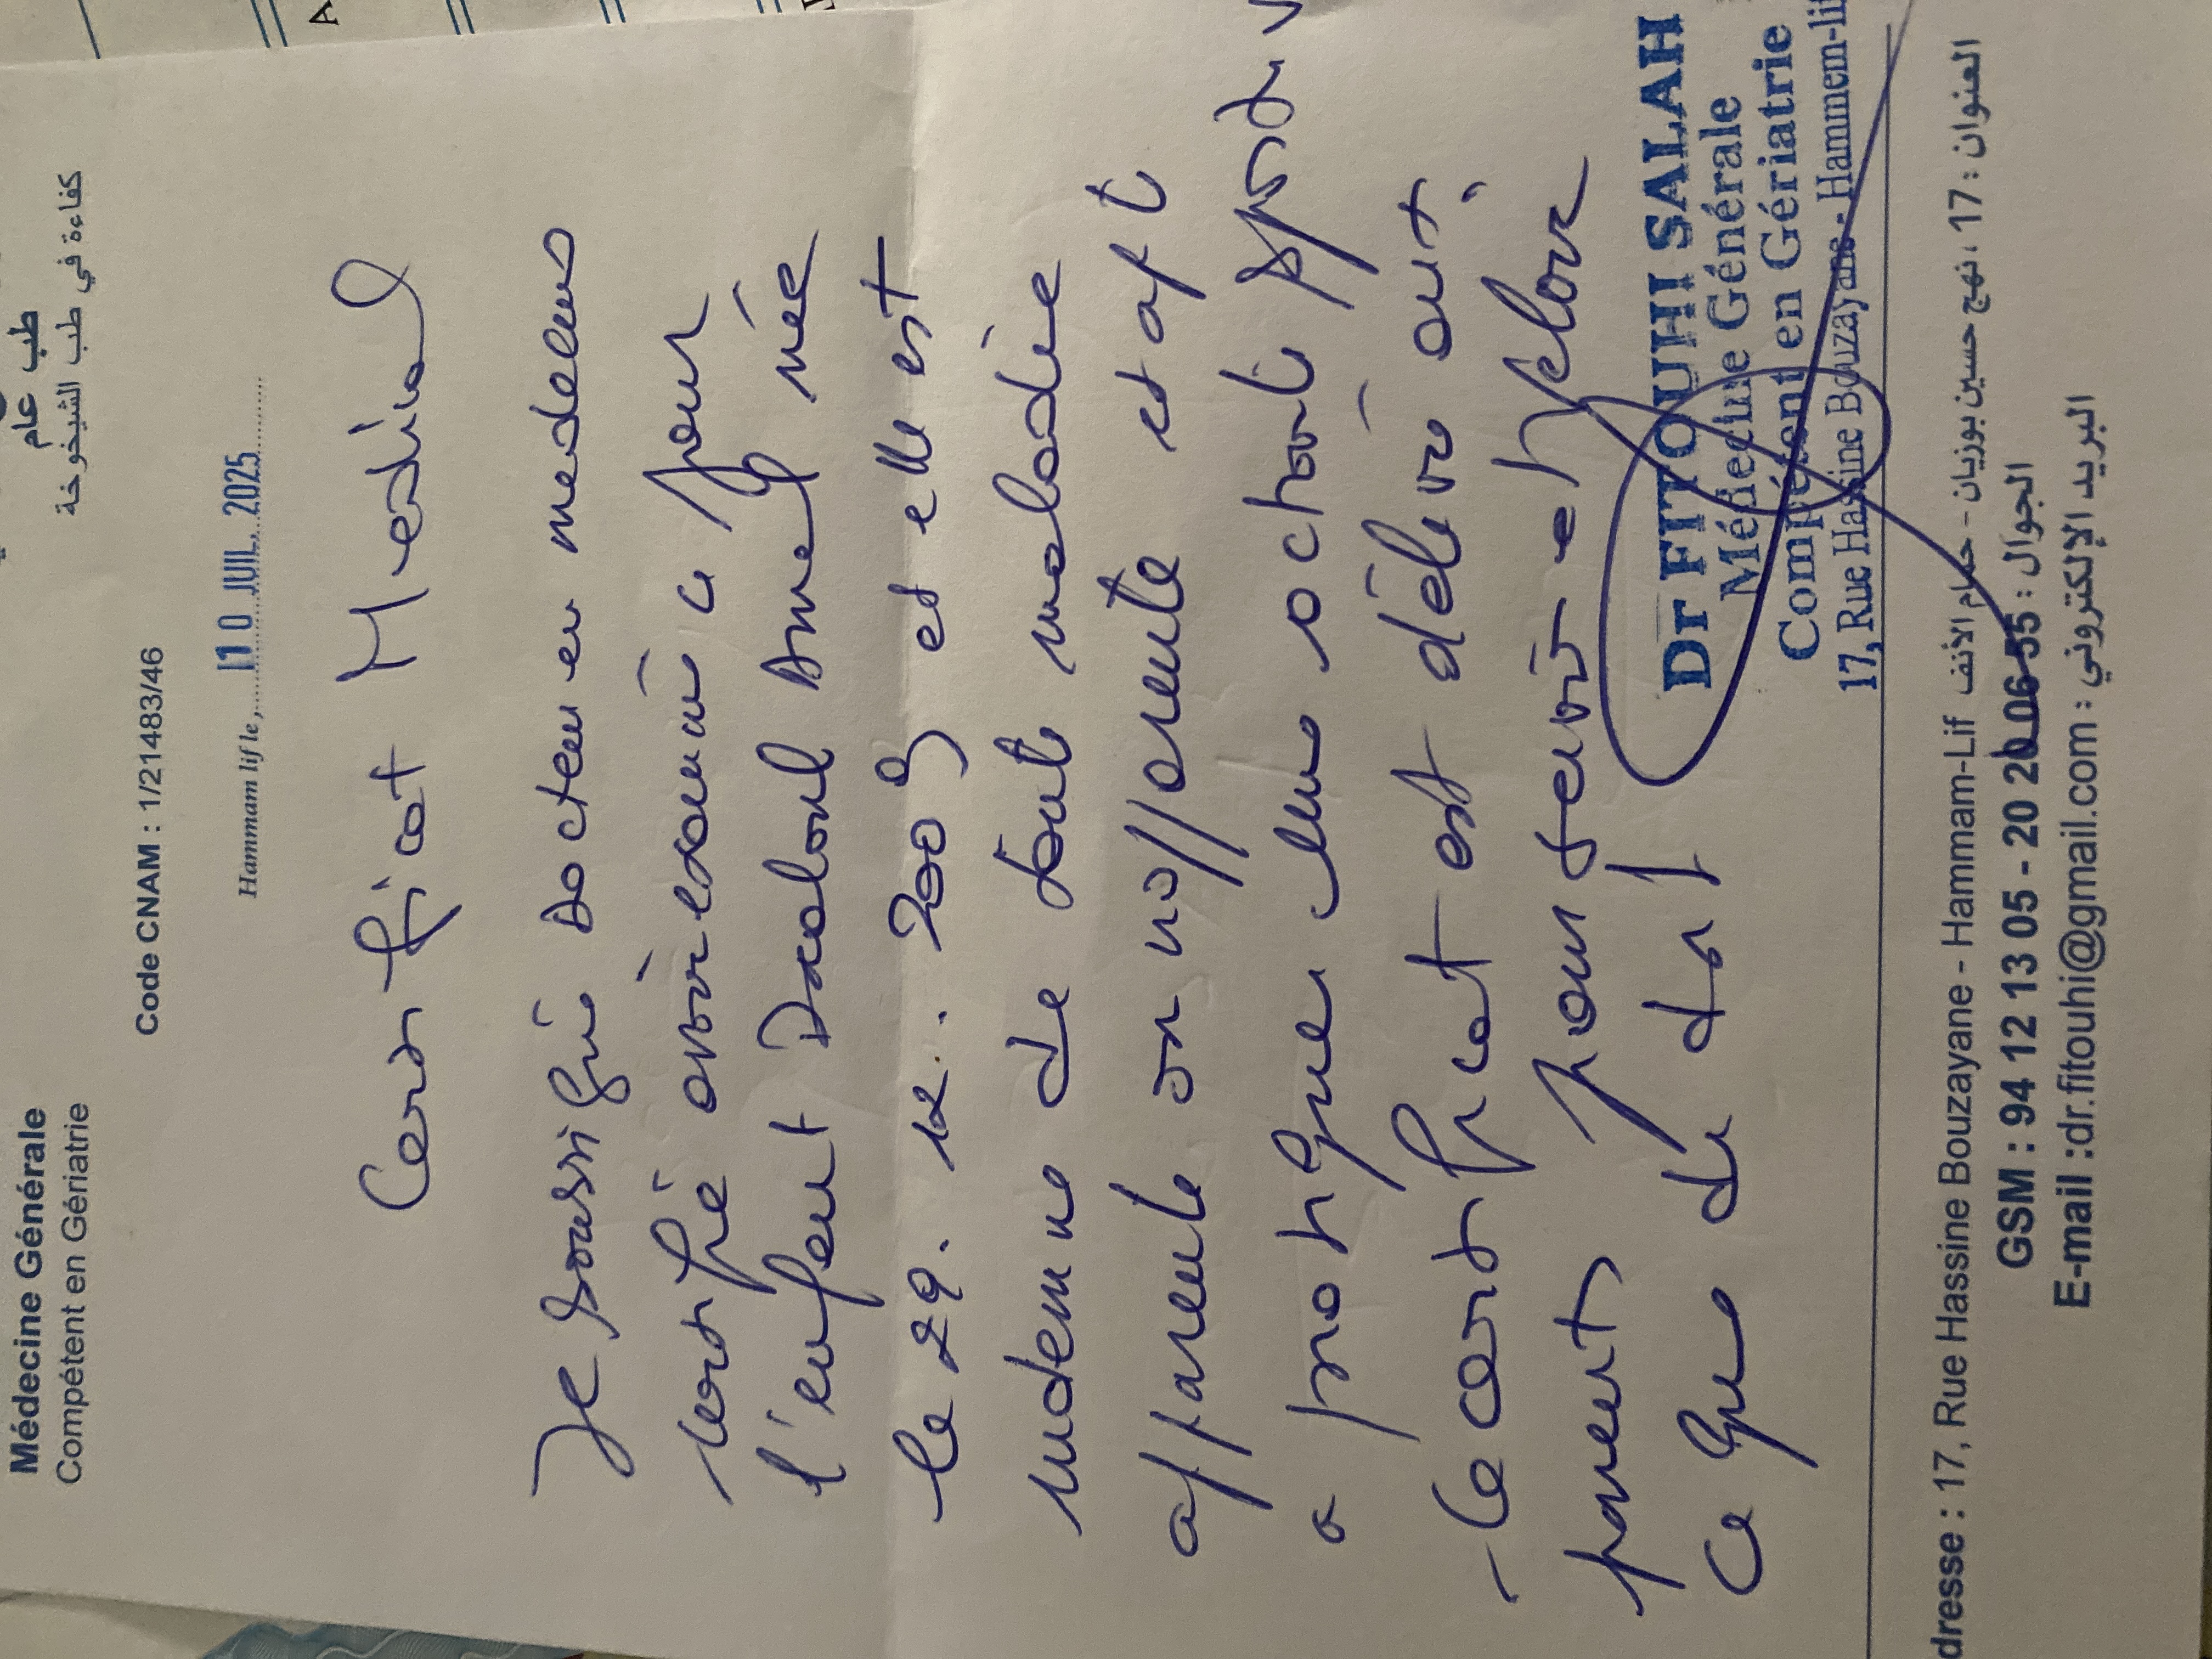 Médecine Générale
Compétent en Gériatrie
طب عام
كفاءة في طب الشيخوخة
Code CNAM : 1/21483/46
Hammam lif le, 10 JUIL. 2025
Certificat Medical
Je soussigné Docteur en medecine
certifié avoir examiné ce jour
l'enfant Amel née
le 29. 12. 2009 et elle est
indemne de toute maladie
apparente et apte
a pratiquer
le certificat est délivré aux
parents pour servir
ce que de droit
Dr FITOUHI SALAH
Médecine Générale
Compétent en Gériatrie
17, Rue Hassine Bouzayane - Hammem-lif
dresse : 17, Rue Hassine Bouzayane - Hammam-Lif العنوان : 17، نهج حسين بوزيان - حمام الأنف
GSM : 94 12 13 05 - 20 206 55 : الجوال
E-mail :dr.fitouhi@gmail.com : البريد الإلكتروني